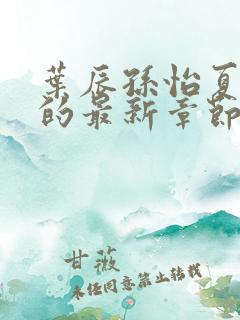 葉辰孫怡夏
的最新章節
甘薇
未經同意禁止轉載